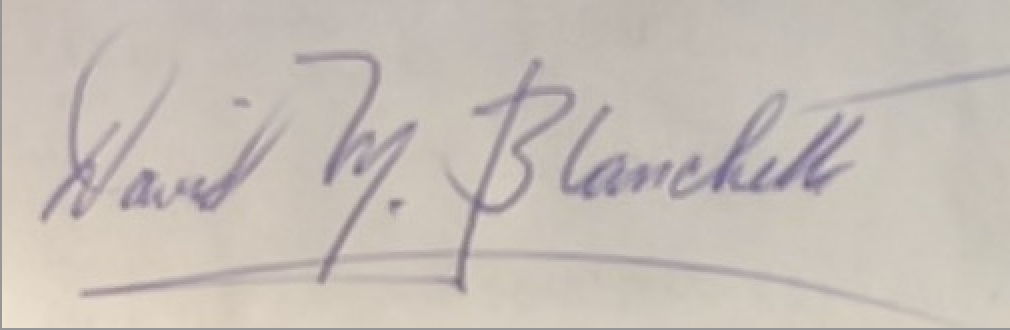 David M. Blanchett